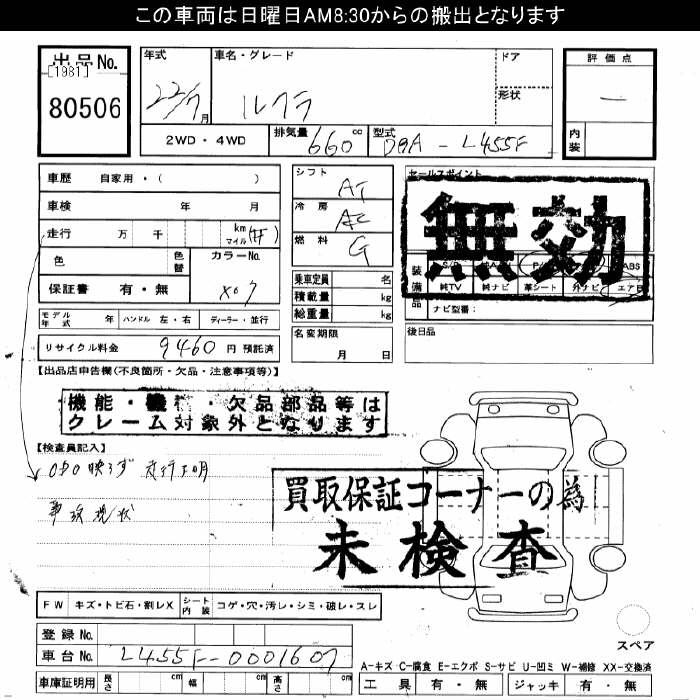 この車両は日曜日AM8:30からの搬出となります
出品No.
[1981]
80506
年式
22/7
月
車名・グレード
ルクラ
ドア
形状
評価点
—
内装
2WD・4WD
排気量 660 cc
型式 DBA-L455F
車歴 自家用・( )
車検 年 月
走行 万 千 km マイル
色
色替
カラーNo.
X07
保証書 有・無
シフト AT
冷房 AC
燃料 G
乗車定員 名
積載量 kg
総重量 kg
名変期限
月 日
セールスポイント
無効
装備品
ABS
純TV 純ナビ 革シート 外ナビ エアB
ナビ型番:
後日品
モデル年式 年 ハンドル 左・右 ディーラー・並行
リサイクル料金 9460 円 預託済
【出品店申告欄(不良箇所・欠品・注意事項等)】
機能・機 ・欠品部品等は
クレーム対象外となります
【検査員記入】
ODO映らず 走行不明
事故現状
買取保証コーナーの為
未検査
FW キズ・トビ石・割レX シート内装 コゲ・穴・汚レ・シミ・破レ・スレ
登録No.
車台No. L455F-0001607
車庫証明用 長さ cm 幅 cm 高さ cm
スペア
A-キズ C-腐食 E-エクボ S-サビ U-凹ミ W-補修 XX-交換済
工具 有・無 ジャッキ 有・無